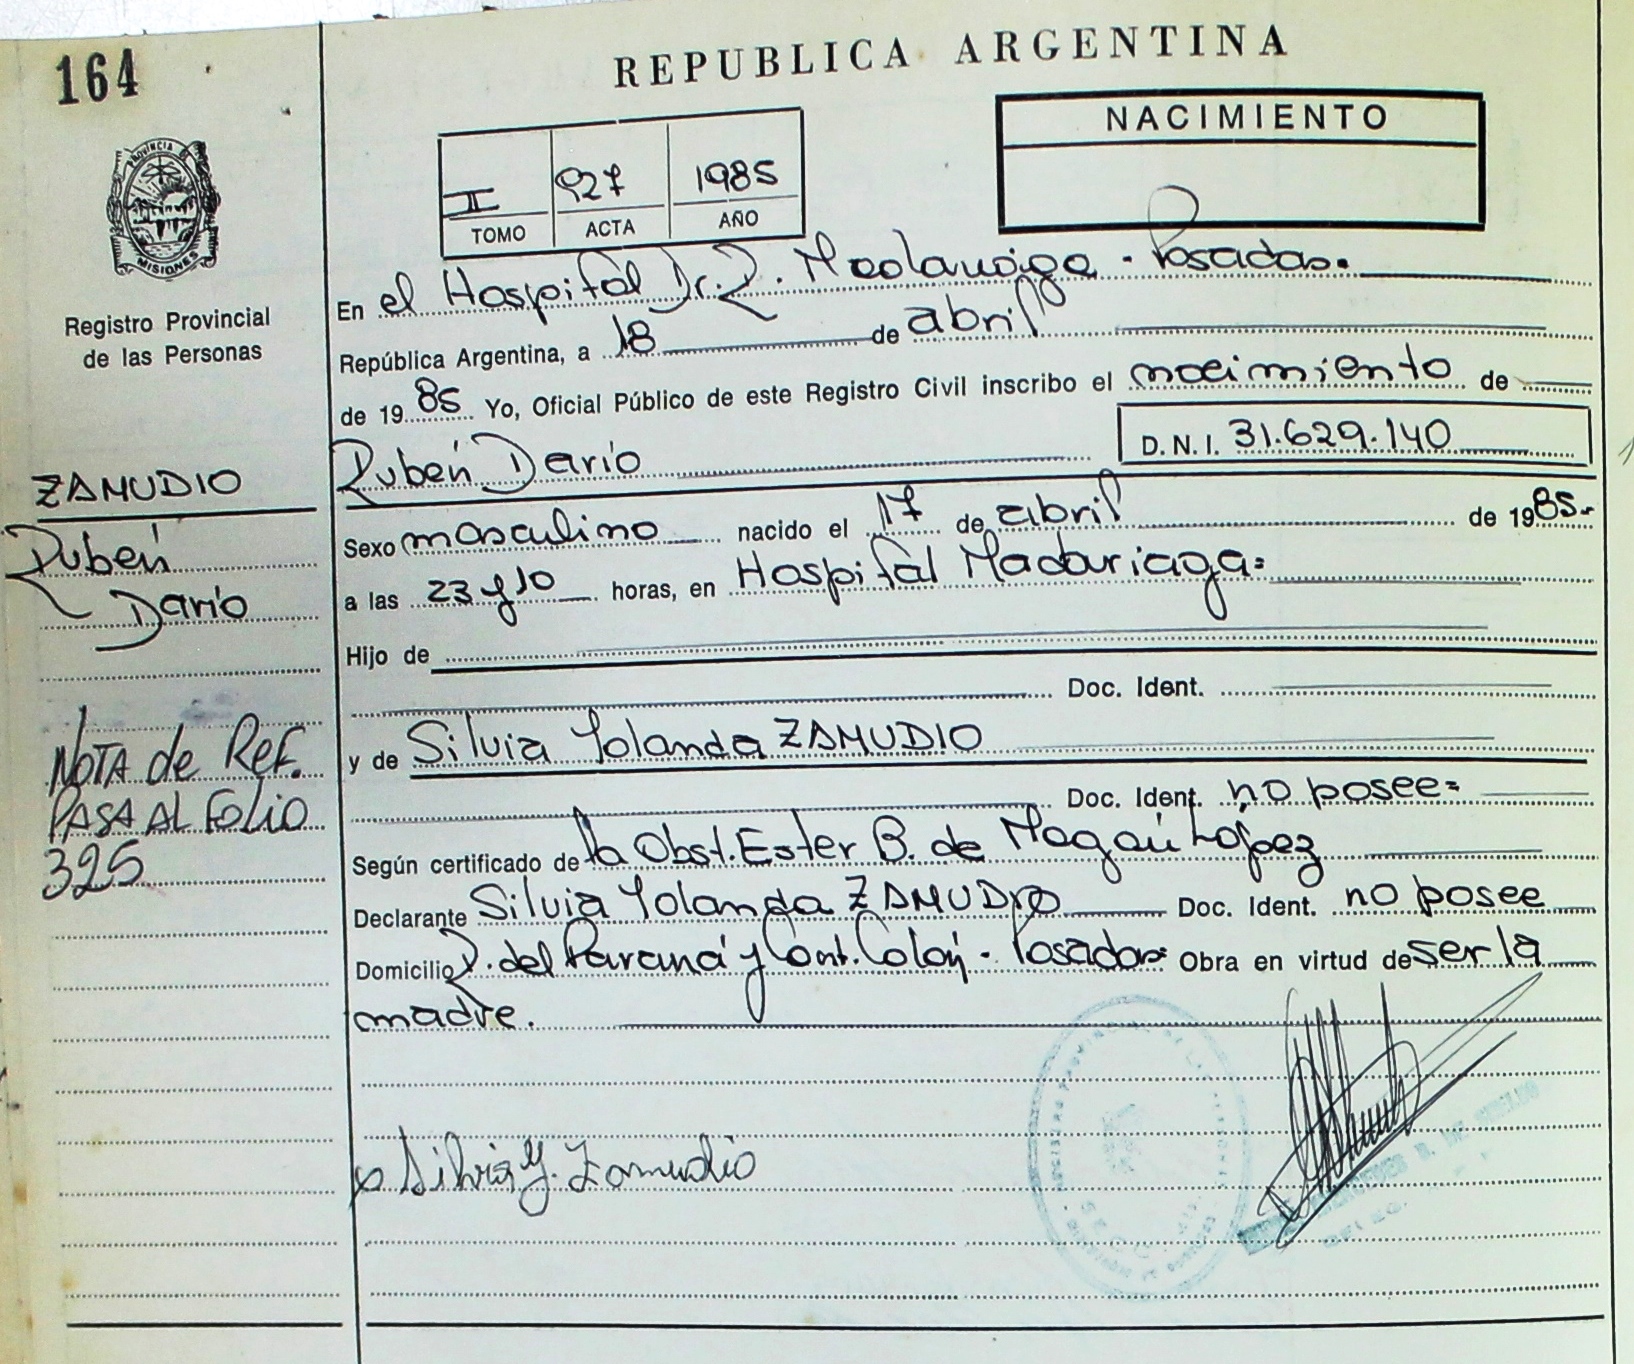 164
REPUBLICA ARGENTINA
PROVINCIA DE
MISIONES
Registro Provincial
de las Personas
II 927 1985
TOMO ACTA AÑO
NACIMIENTO
En el Hospital Dr. R. Madariaga - Posadas.
República Argentina, a 18 de abril
de 1985 Yo, Oficial Público de este Registro Civil inscribo el nacimiento de
Rubén Darío D.N.I. 31.629.140
ZAMUDIO
Rubén
Darío
Sexo masculino nacido el 17 de abril de 1985.-
a las 23 y 10 horas, en Hospital Madariaga=
Hijo de
Doc. Ident.
y de Silvia Yolanda ZAMUDIO
Doc. Ident. no posee=
NOTA de REF.
PASA AL FOLIO
325
Según certificado de la Obst. Ester B. de López
Declarante Silvia Yolanda ZAMUDIO Doc. Ident. no posee
Domicilio R. del Paraná y Cont. Colón - Posadas= Obra en virtud de ser la
madre.
Silvia Y. Zamudio